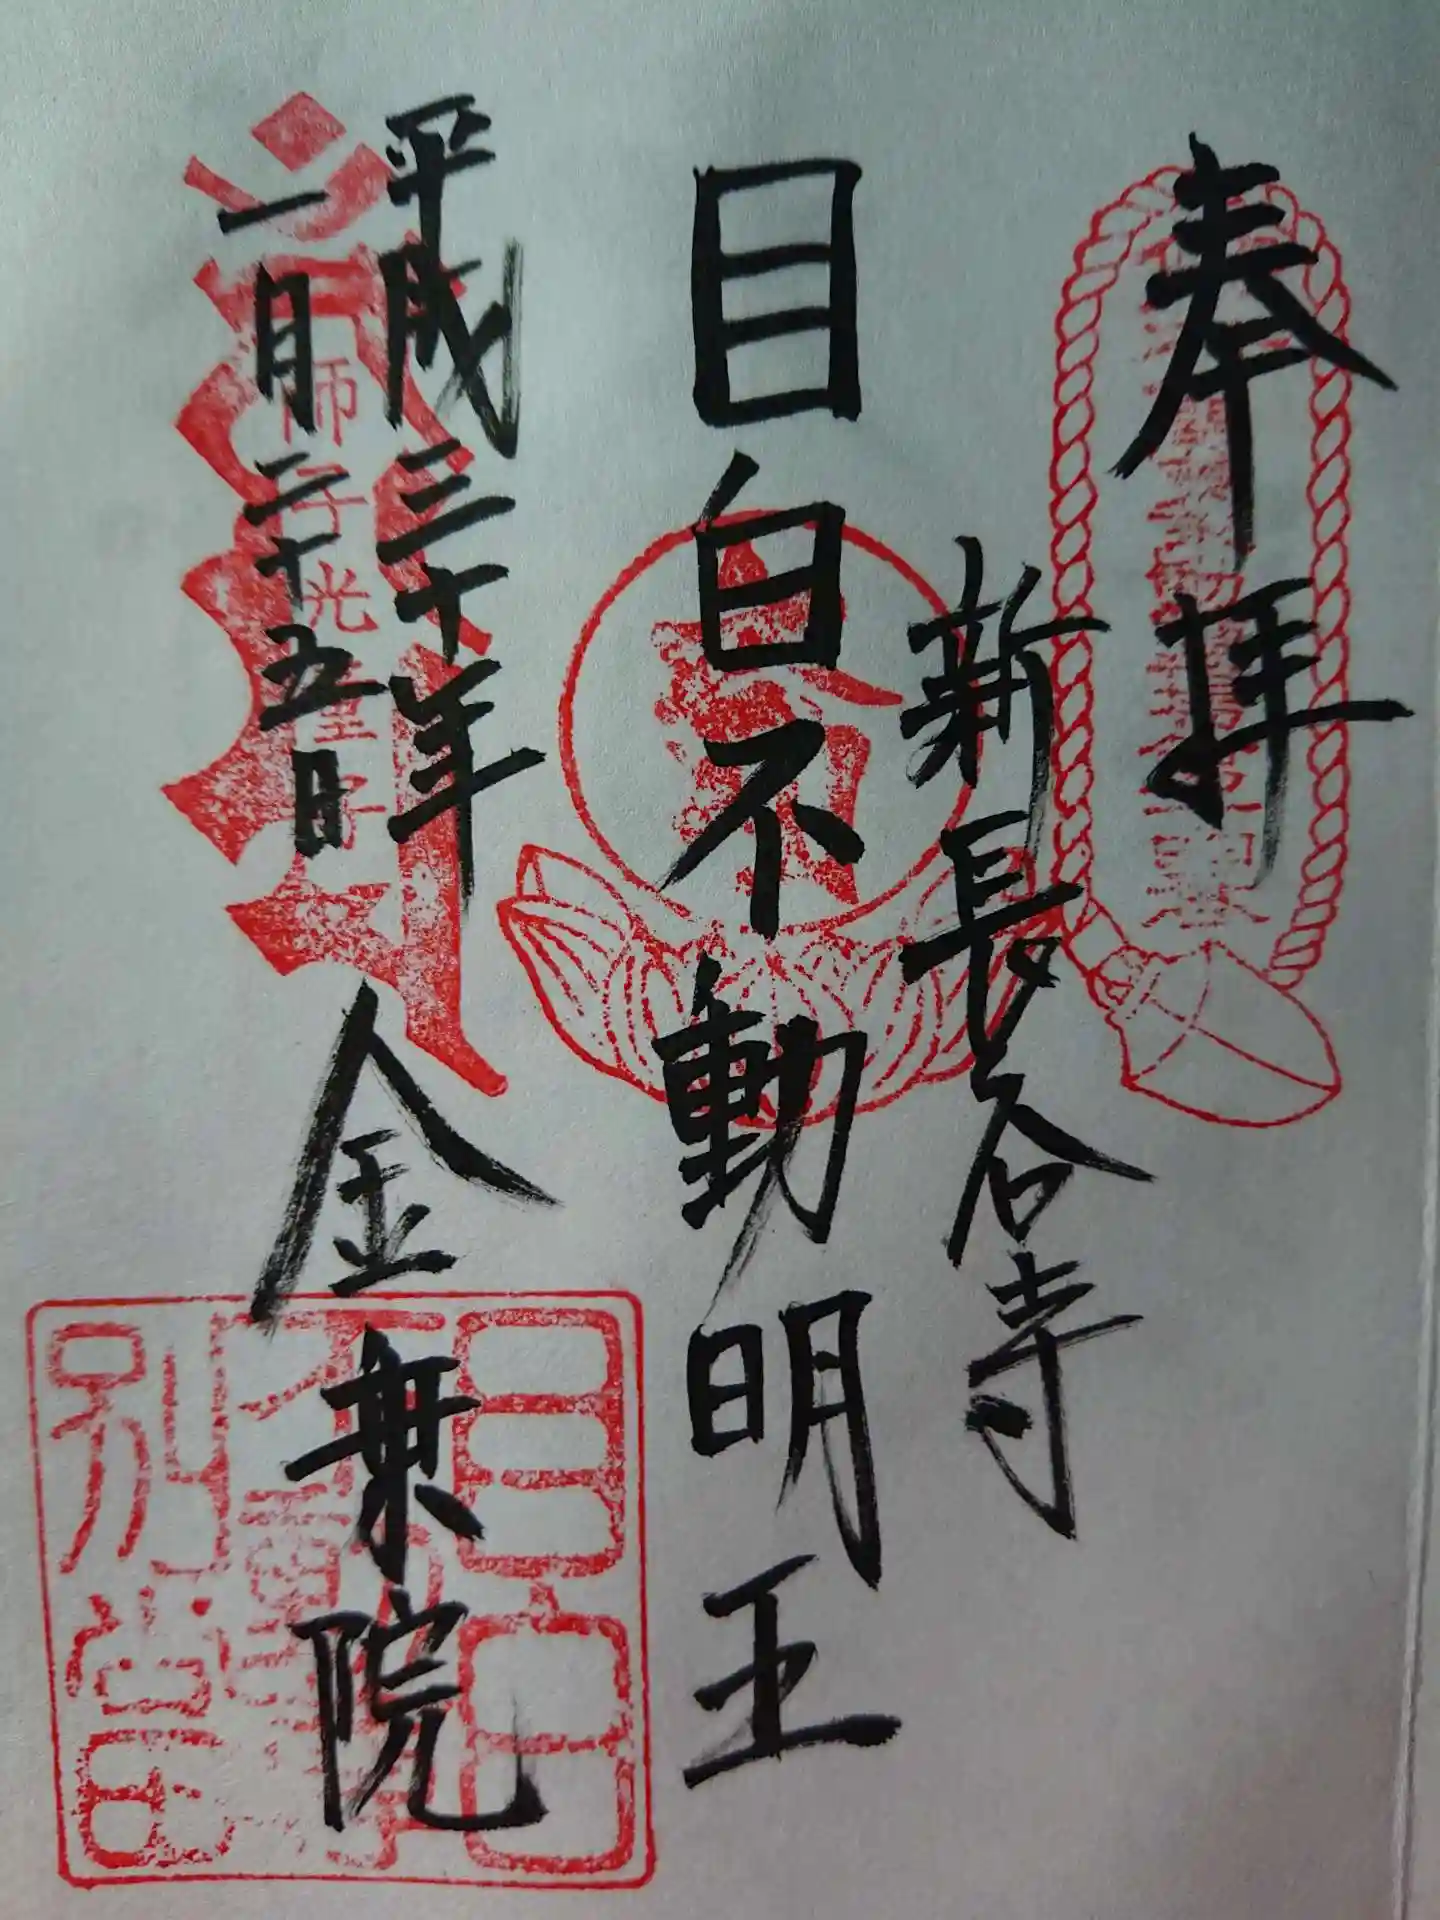 奉拝
新長谷寺
目白不動明王
平成三十年
一月二十五日
金乗院
師子光童子
目白
別當